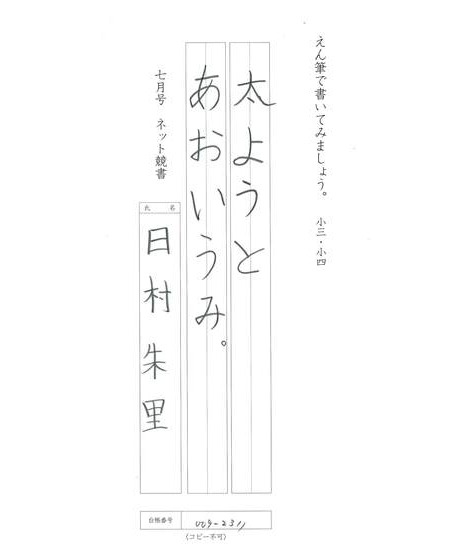 えん筆で書いてみましょう。 小三・小四
太ようと
あおいうみ。
七月号 ネット競書
氏名
日村朱里
台帳番号 009-2311
(コピー不可)